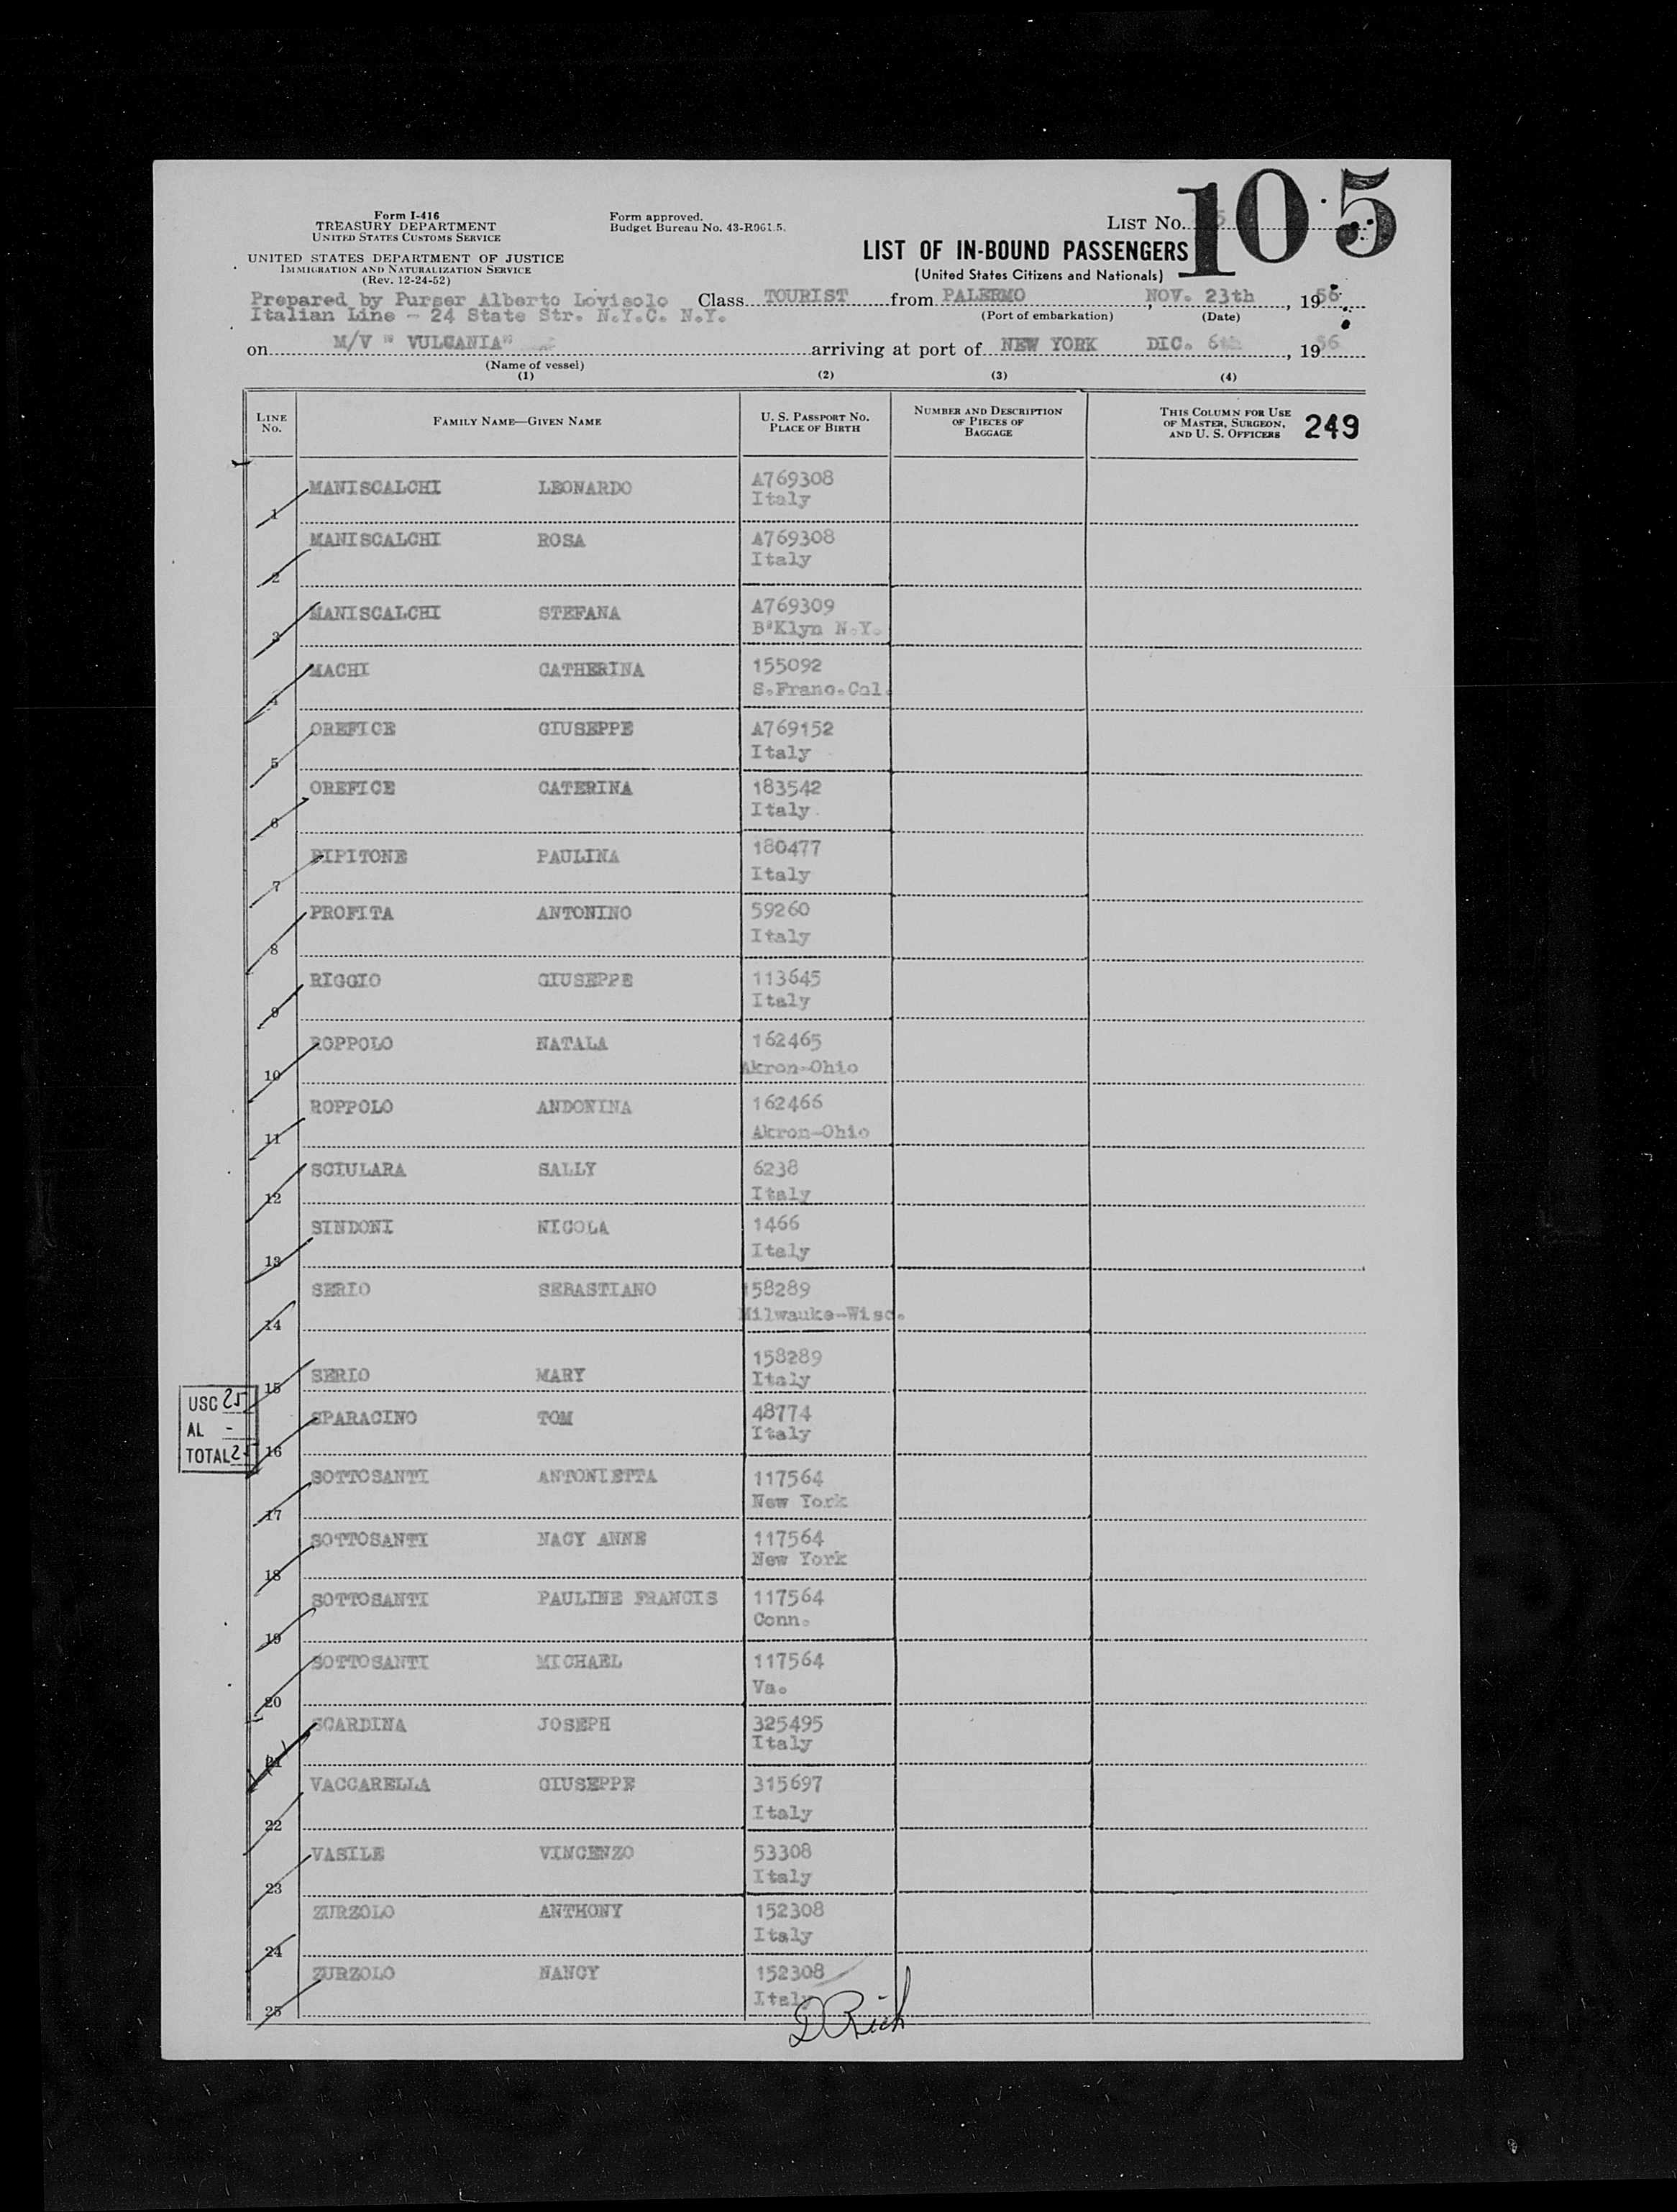 Form I-416
TREASURY DEPARTMENT
UNITED STATES CUSTOMS SERVICE
UNITED STATES DEPARTMENT OF JUSTICE
IMMIGRATION AND NATURALIZATION SERVICE
(Rev. 12-24-52)
Form approved.
Budget Bureau No. 43-R061.5.
LIST NO.
105
LIST OF IN-BOUND PASSENGERS
(United States Citizens and Nationals)
Prepared by Purser Alberto Lovisolo Class TOURIST from PALERMO, NOV. 23th, 1956
Italian Line - 24 State Str. N.Y.C. N.Y. (Port of embarkation) (Date)
on M/V " VULCANIA" arriving at port of NEW YORK DIC. 6th, 1956
(Name of vessel)
(1) (2) (3) (4)
LINE NO. FAMILY NAME—GIVEN NAME U. S. PASSPORT NO. PLACE OF BIRTH NUMBER AND DESCRIPTION OF PIECES OF BAGGAGE THIS COLUMN FOR USE OF MASTER, SURGEON, AND U. S. OFFICERS 249
1 MANISCALCHI LEONARDO A769308
Italy
2 MANISCALCHI ROSA A769308
Italy
3 MANISCALCHI STEFANA A769309
B"Klyn N.Y.
4 MACHI CATHERINA 155092
S.Franc.Cal.
5 OREFICE GIUSEPPE A769152
Italy
6 OREFICE CATERINA 183542
Italy
7 PIPITONE PAULINA 180477
Italy
8 PROFITA ANTONINO 59260
Italy
9 RIGGIO GIUSEPPE 113645
Italy
10 ROPPOLO NATALA 162465
Akron-Ohio
11 ROPPOLO ANDONINA 162466
Akron-Ohio
12 SCIULARA SALLY 6238
Italy
13 SINDONI NICOLA 1466
Italy
14 SERIO SEBASTIANO 158289
Milwauke-Wisc.
15 SERIO MARY 158289
Italy
USC 25
AL -
TOTAL 25
16 SPARACINO TOM 48774
Italy
17 SOTTOSANTI ANTONIETTA 117564
New York
18 SOTTOSANTI NACY ANNE 117564
New York
19 SOTTOSANTI PAULINE FRANCIS 117564
Conn.
20 SOTTOSANTI MICHAEL 117564
Va.
21 SCARDINA JOSEPH 325495
Italy
22 VACCARELLA GIUSEPPE 315697
Italy
23 VASILE VINCENZO 53308
Italy
24 ZURZOLO ANTHONY 152308
Italy
25 ZURZOLO NANCY 152308
Italy
D Rich